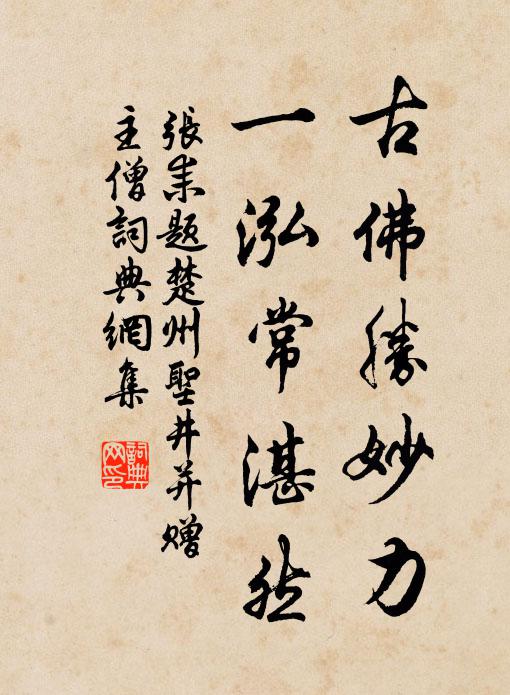 古佛勝妙力
一泓常湛然
張耒題楚州聖井并贈
主僧詞典網集
詞典
网印